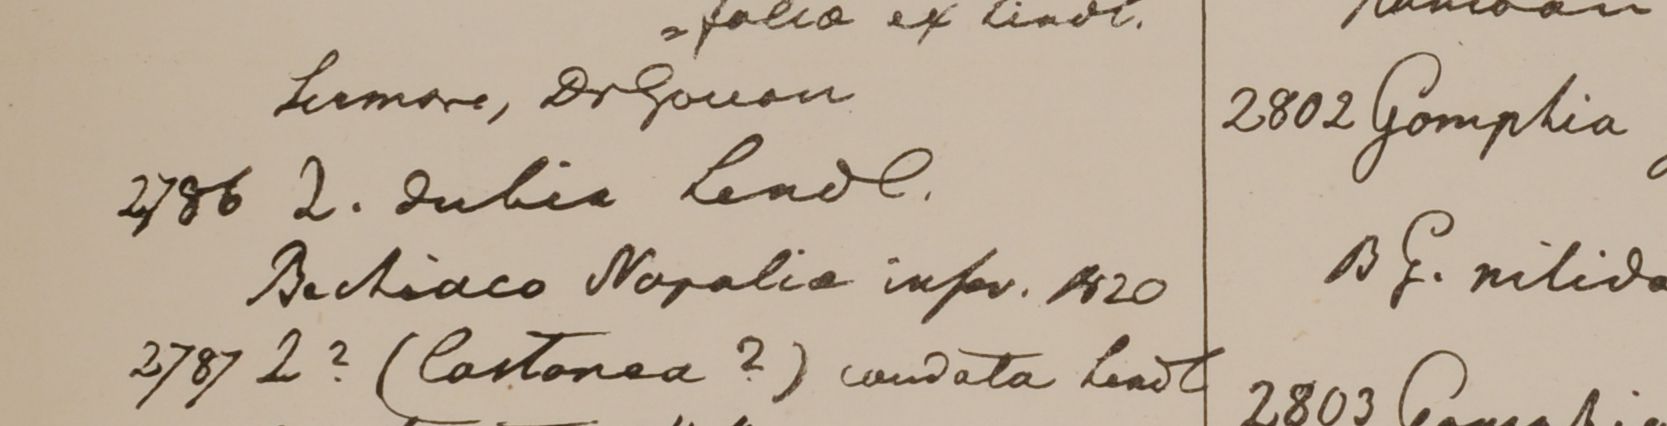 =folia ex Lindl.
Sermore, Dr Govan
2786 Q. dubia Lindl.
Bechiaco Napalia infer. 1820
2787 Q? (Castanea?) caudata Lindl
2802 Gomphia
B G. nitida
2803 Gomphia